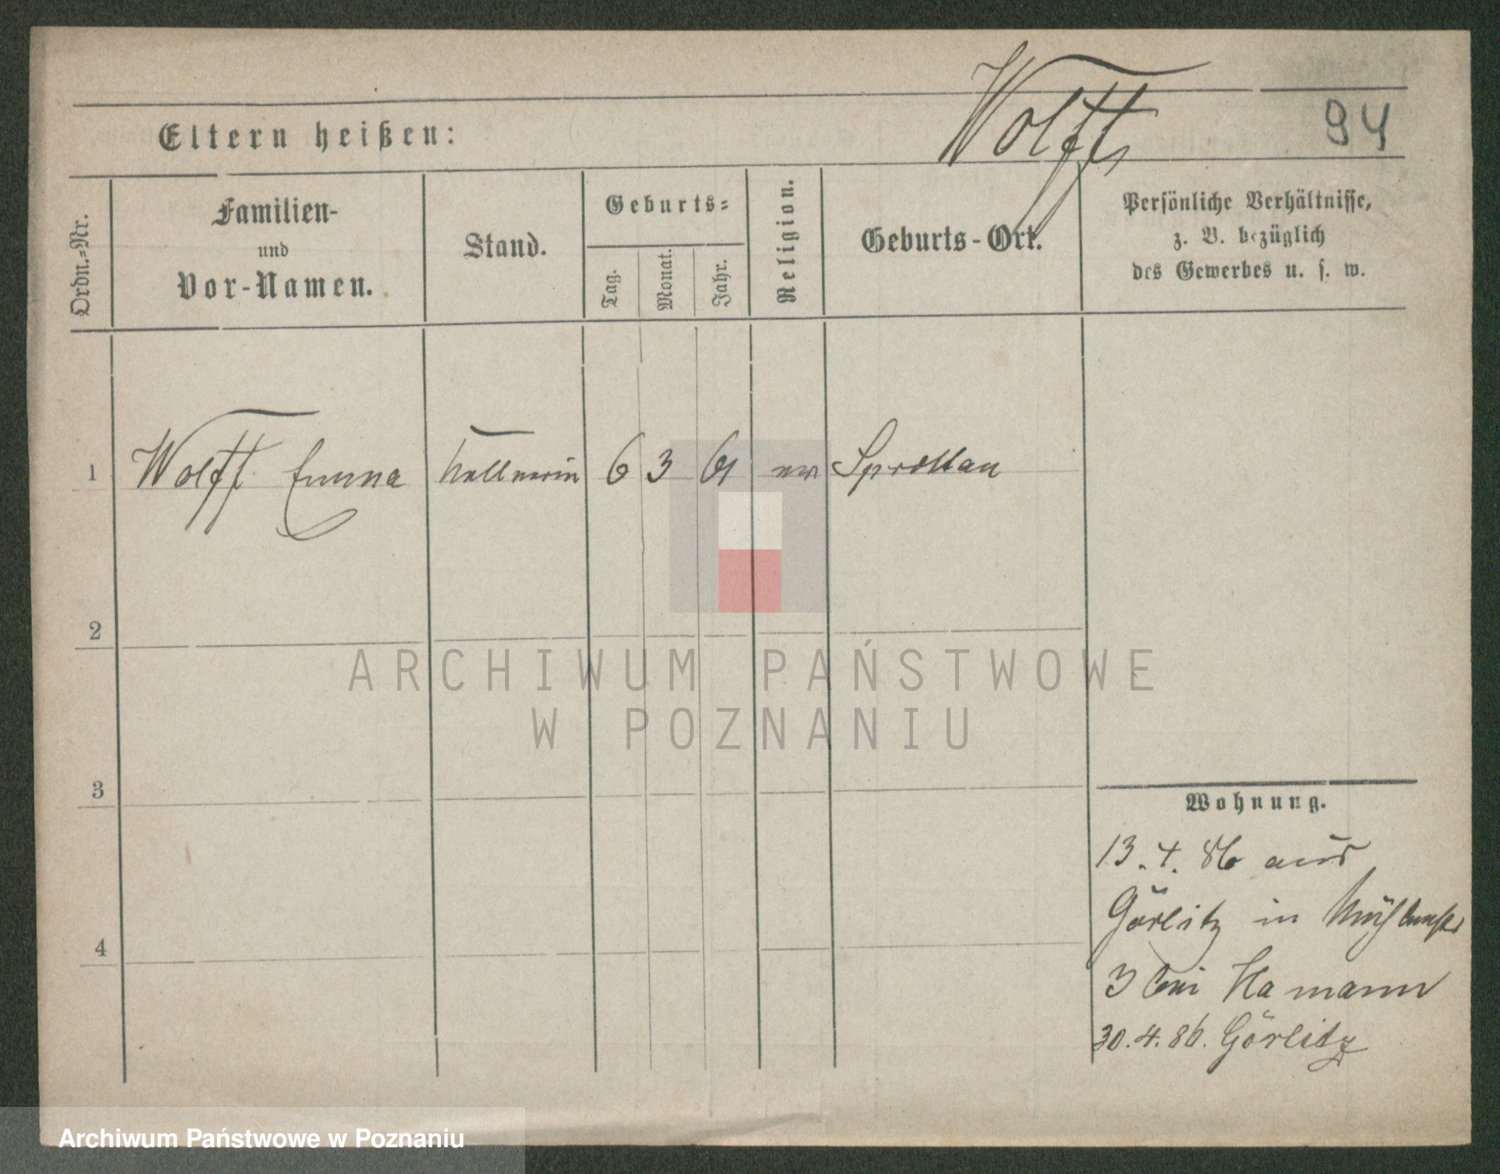 Wolff
94
Eltern heißen:
Ordn.-Nr.
Familien-
und
Vor-Namen.
Stand.
Geburts-
Tag.
Monat.
Jahr.
Religion.
Geburts-Ort.
Persönliche Verhältnisse,
z. B. bezüglich
des Gewerbes u. s. w.
1 Wolff Emma Kellnerin 6 3 61 ev Sprottau
2
ARCHIWUM PAŃSTWOWE
W POZNANIU
3
Wohnung.
13. 4. 86 aus
Görlitz in Mühlenstr
4
3 bei Hamann
30. 4. 86. Görlitz
Archiwum Państwowe w Poznaniu